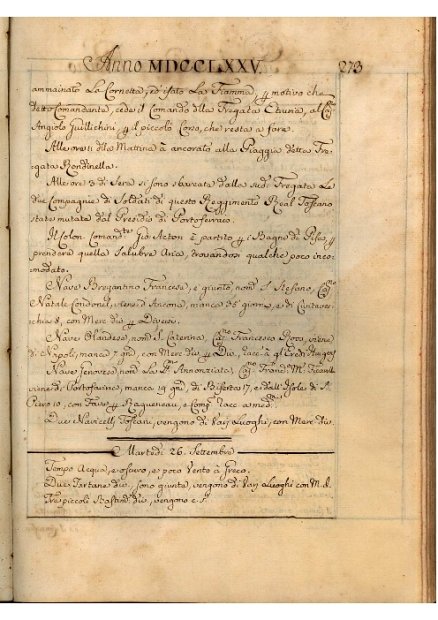 Anno MDCCLXXV. 273
ammainato La Cornetta, ed isato La Fiamma, p motivo che
detto Comandante, cede il Comando dlla Fregata Etruria, al Cap.no
Angiolo Guillichini, p il piccolo Corso, che resta a fare.
Alle ore 11 dlla Mattina à ancorato alla Piaggia detta Fre-
gata Rondinella.
Alle ore 3 di Sera si sono sbarcate dalla sud.a Fregata Le
due Compagnie di Soldati di questo Reggimento Real Toscano
state mutate dal Presidio di Portoferraio.
Il Colon. Comand.te Gio Acton è partito p i Bagni di Pisa, p
prendere quella Salubre Aria, trovandosi qualche poco inco-
modato.
Nave Bregantino Francese, è giunto, nom.o S. Stefano, Cap.no
Natale viene d'Ancona, manca 35 giorni, e di Civitavec-
chia 8, con Merc div.e p Diversi.
Nave Olandese, nom.a S. Caterina, Cap.no Francesco viene
di Napoli, manca 7 gni, con Merc div.e p Div. racc. a gl'Eredi
Nave Genovese, nom.a La SS. Annonziata, Cap.no Fran.co M.a
viene d. Portofarina, manca 19 gni, di Biserta 17, e dall'Isola di S.
Piero 10, con Fave p Ragueneau, e Comp. racc. a med.mi
Due Navicelli Toscani, vengono di Varj Luoghi, con Merc div.e
Martedì 26. Settembre
Tempo Acqua, e oscuro, e poco Vento à Greco.
Due Tartane div.e, sono giunte, vengono di Varj Luoghi con M. d.
Tre piccoli Bastim. div.i, vengono c. S.